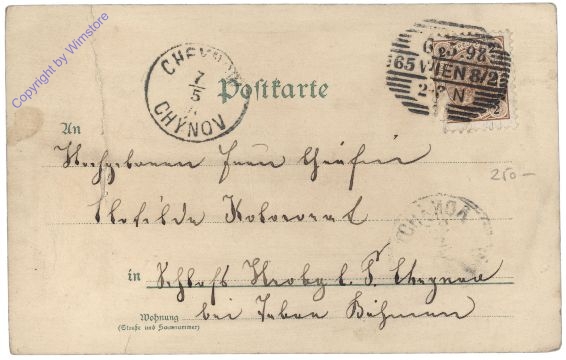 Copyright by Wimstore
CHEYNOW
7
5
CHÝNOV
6 5 98
65 WIEN 8/2
2-3 N
Postkarte
An
Hochgeboren Frau Gräfin
Clotilde Kolowrat
250-
CHÝNOV
in Schloss Hroby
bei Tabor Böhmen
Wohnung
(Straße und Hausnummer)